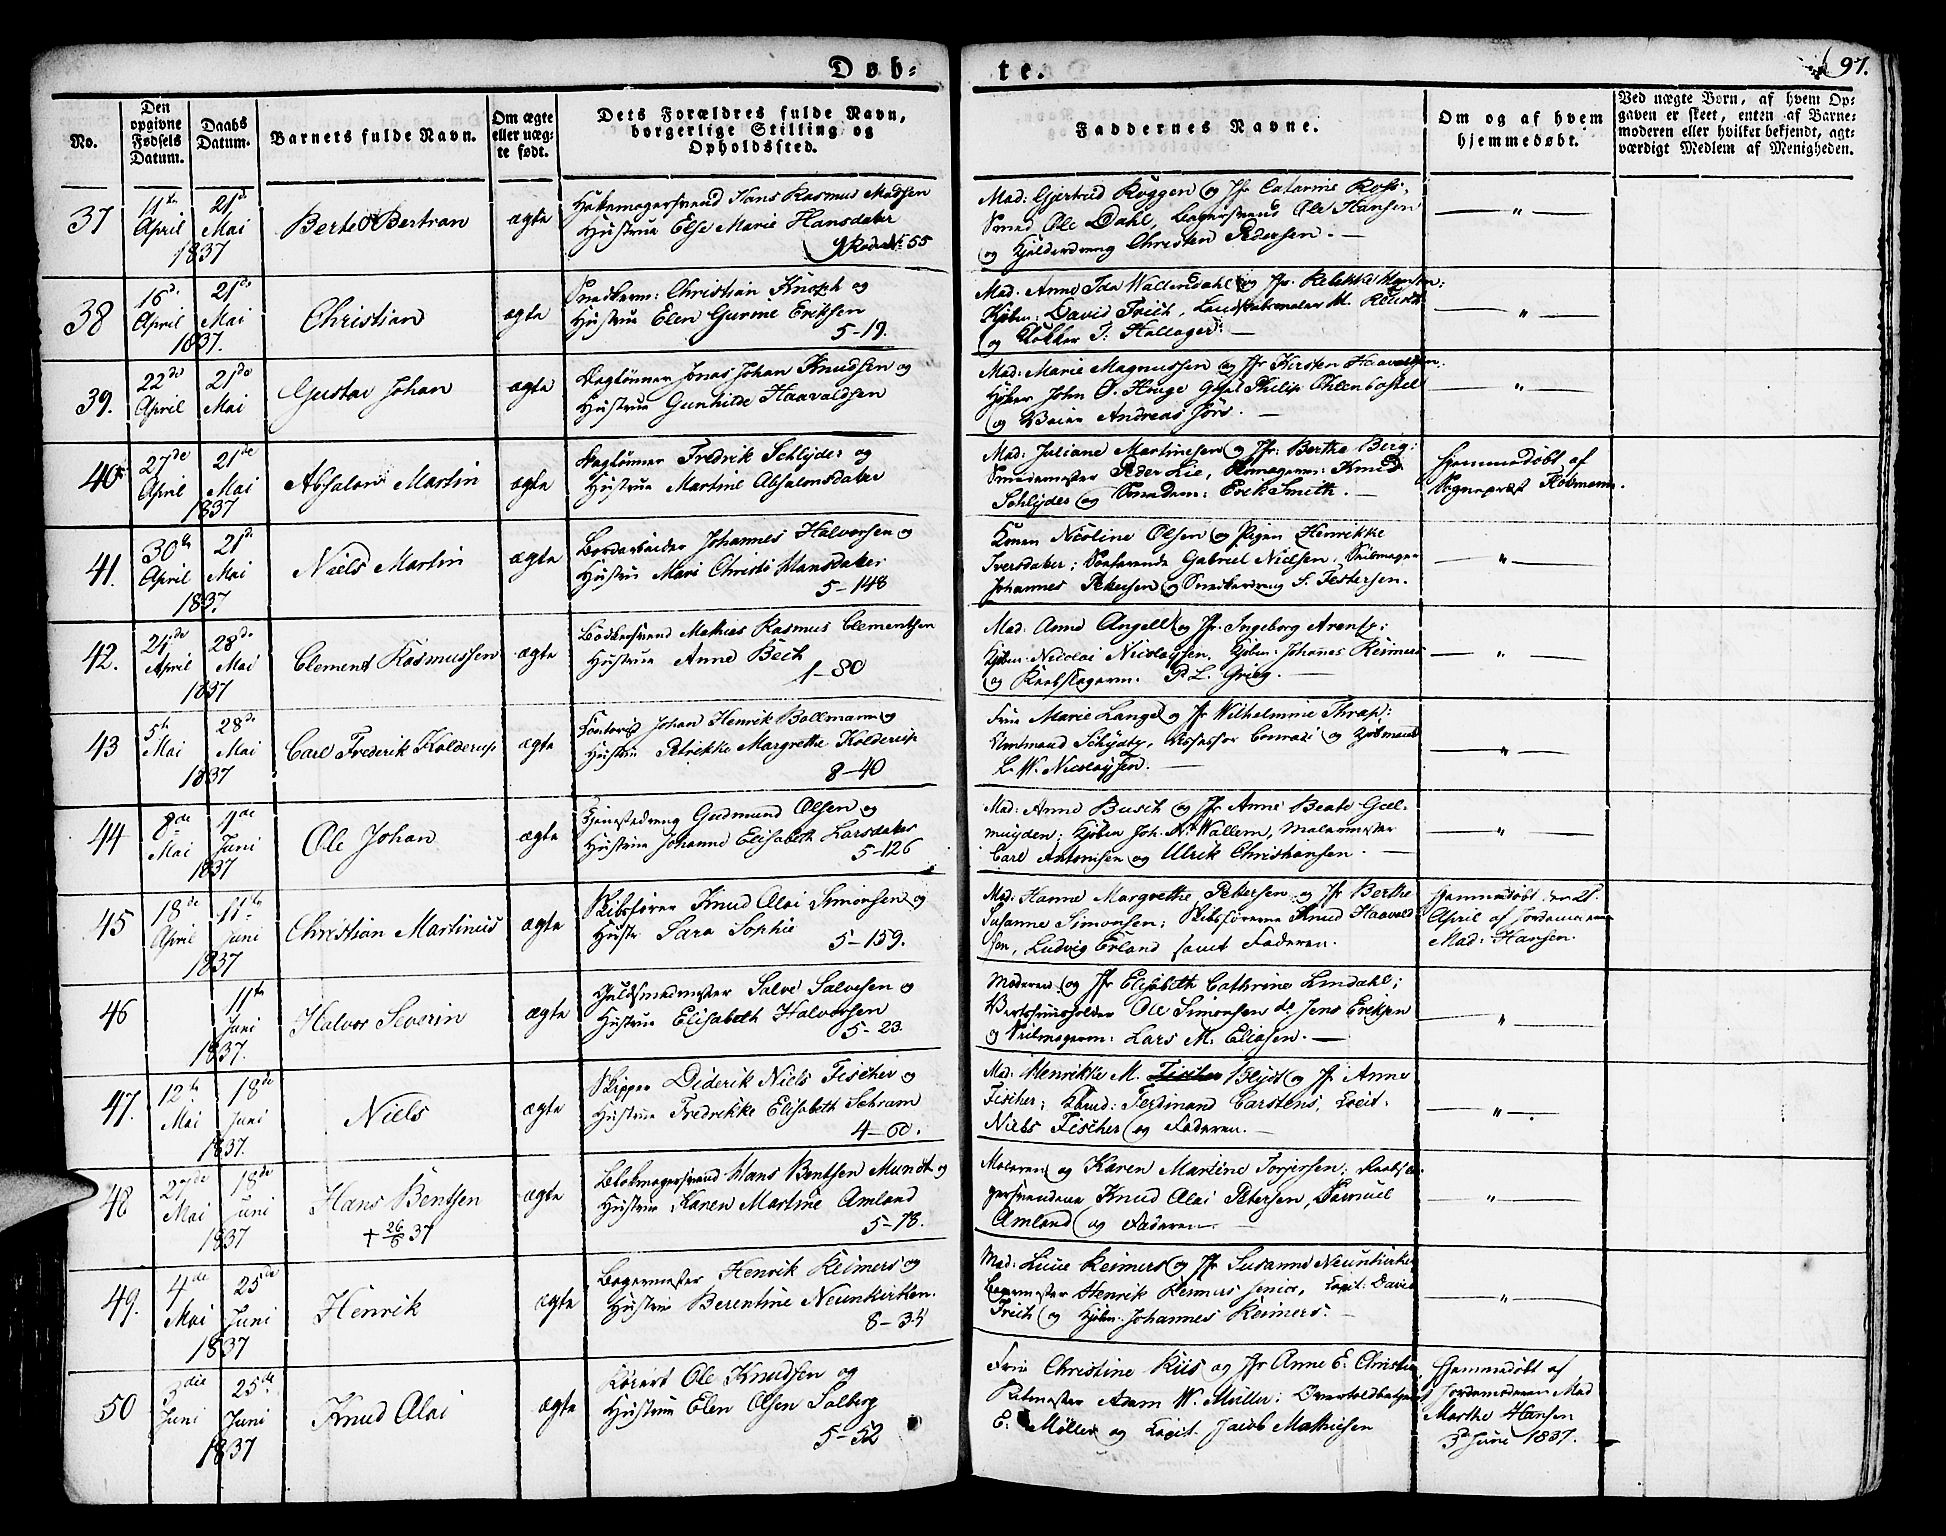 Døb=
te.
97.
No.
Den
opgivne
Fødsels
Datum.
Daabs
Datum.
Barnets fulde Navn.
Om ægte
eller uæg-
te født.
Dets Forældres fulde Navn,
borgerlige Stilling og
Opholdssted.
Faddernes Navne.
Om og af hvem
hjemmedøbt.
Ved uægte Børn, af hvem Op-
gaven er skeet, enten af Barne-
moderen eller hvilket bekjendt, agt-
værdigt Medlem af Menigheden.
37
11te April
21d Mai
1837
Berte Bertran
ægte
Hans Rasmus Madsen
Hustrue Else Marie Hansdater
55
Mad: Gjertrud Roggen og Jfr Catarine Ross,
Smed Ole Dahl, Bagersvend Ole Hansen
og Christen Pedersen. —
— " —
38
16d April
21de Mai
1837.
Christian
ægte
Snedkerm: Christian Knoph og
Hustrue Elen Gurine Eriksen
5-19
Mad. Anne Ida Wallendahl og Jfr.
Kjøbm: David Frich, M.
og Klokker J: Hallager. —
— " —
39.
22de April
21de Mai
1837
Gustav Johan
ægte
Daglønner Jonas Johan Knudsen og
Hustrue Gunhilde Haavaldsen
Mad: Marie Magnussen og Jfr Kirsten Haavaldsen:
John O. Philip Ohlenbostel
og Andreas —
— " —
40
27de April
21de Mai
1837
Absalon Martin
ægte
Daglønner Fredrik Schlyder og
Hustrue Martine Absalonsdater
Mad: Juliane Martinesen og Jfr: Berthe Berg:
Smedemester Peder Lie, Knud
Schlyder og Smedem: Erik Smith. —
Hjemmedøbt af
Sognepræst
41.
30te April
21d Mai
1837.
Niels Martin
ægte
Bordarbeider Johannes Halvorsen og
Hustrue Mari Christi Hansdater
5-148
Konen Nicoline Olsen og Pigen Henrikke
Iversdater; Søefarende Gabriel Nielsen, Seilmager
Johannes Petersen og Snedkerdreng S. Testersen.
— " —
42.
24de April
28de Mai
1837
Clement Rasmussen
ægte
Bødkersvend Mathias Rasmus Clementsen
Hustrue Anne Bech
1-80
Mad: Anne Angell og Jfr. Ingeborg Arentz;
Kjøbm. Nicolai Nicolaysen, Kjøbm. Johannes Reimers
og Rebslagerm. P. L. Grieg. —
— " —
43
5te Mai
28de Mai
1837
Carl Frederik Kolderup
ægte
Contorist Johan Henrik Bollmann og
Hustrue Petrikke Margrethe Kolderup
8-40
Frue Marie Lange og Jfr Wilhelmine Thrap:
Amtmand Schydtz, Assessor Conradi og Kjøbmand
L. W. Nicolaysen. —
— " —
44
8de Mai
4de Juni
1837
Ole Johan
ægte
Tjenestedreng Gudmund Olsen og
Hustrue Johanne Elisabeth Larsdater
5-126
Mad: Anne Busch og Jfr Anne Beate Gæl-
muyden; Kjøbm Joh. N. Wallem, Malermester
Carl Antonisen og Ulrik Christiansen. —
— " —
45
18de April
11te Juni
1837
Christian Martinus
ægte
Skibsfører Knud Alai Simonsen og
Hustr Sara Sophie
5-159.
Mad: Hanne Margrethe Petersen og Jfr Berthe
Susanne Simonsen; Skibsførerne Knud Haavald-
sen, Ludvig Erland samt Faderen.
Hjemmedøbt den 21.
April af Jordemoderen
Mad: Hansen.
46
11te Juni
1837.
Halvor Severin
ægte
Guldsmedmester Salve Salvesen og
Hustrue Elisabeth Halvorsen
5-23
Moderen og Jfr Elisbeth Cathrine Lindahl;
Vertshuusholder Ole Simonsen do Jens Eriksen
og Seilmagerm: Lars M. Eliasen. —
— " —
47.
12te Mai
18de Juni
1837.
Niels
ægte
Skipper Diderik Niels Fischer og
Hustrue Fredrikke Elisabeth Schram
4-60.
Mad: Henrikke M. Fischer Blydt og Jfr Anne
Fischer; Ferdinand Carstens, Logit:
Niels Fischer og Faderen. —
— " —
48
27de Mai
18de Juni
1837
Hans Bentsen
+ 26/6 37
ægte
Blokmagersvend Hans Bentsen Mundt og
Hustrue Karen Martine Amland
5-78.
Moderen og Karen Martine Torjersen; Rebsla-
gersvendene Knud Alai Petersen, Samuel
Amland og Faderen. —
— " —
49.
4de Mai
25de Juni
1837
Henrik
ægte
Bagermester Henrik Reimers og
Hustrue Berentine Neunkirken.
8-34
Mad: Lucie Reimers og Jfr Susanne Neunkirken
Bagermester Henrik Reimers senior, Logit. David
Frich og Kjøbm. Johannes Reimers. —
— " —
50
3die Juni
25de Juni
1837
Knud Alai
ægte
Ole Knudsen og
Hustrue Elen Olsen Solberg
5-52
Frue Christine Riis og Jfr Anne E. Christie
Adam W. Müller: Overtoldbetjent
E. Møller og Logit. Jacob Mathiesen
Hjemmedøbt af
Jordemoderen Mad
Marthe Hansen
3d Juni 1837.